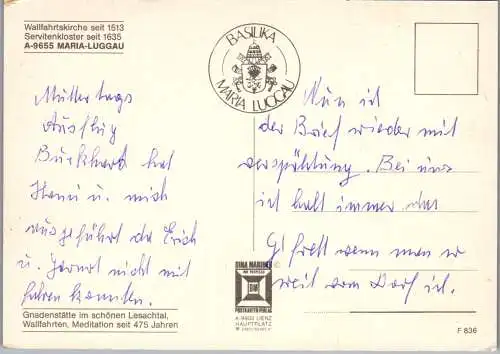 Wallfahrtskirche seit 1513
Servitenkloster seit 1635
A-9655 MARIA-LUGGAU
BASILIKA
MARIA LUGGAU
Muttertags
Ausflug
Burkhard hat
Hansi u. mich
ausgeführt da Erich
u. Gernot nicht mit
fahren konnten.
Nun ist
der Brief wieder mit
verspähtung. Bei uns
ist halt immer das
G'frett wenn man so
weit vom Dorf ist.
TINA MARIN
POSTKARTEN VERLAG
A-9900 LIENZ
HAUPTPLATZ
Gnadenstätte im schönen Lesachtal,
Wallfahrten, Meditation seit 475 Jahren
F 836